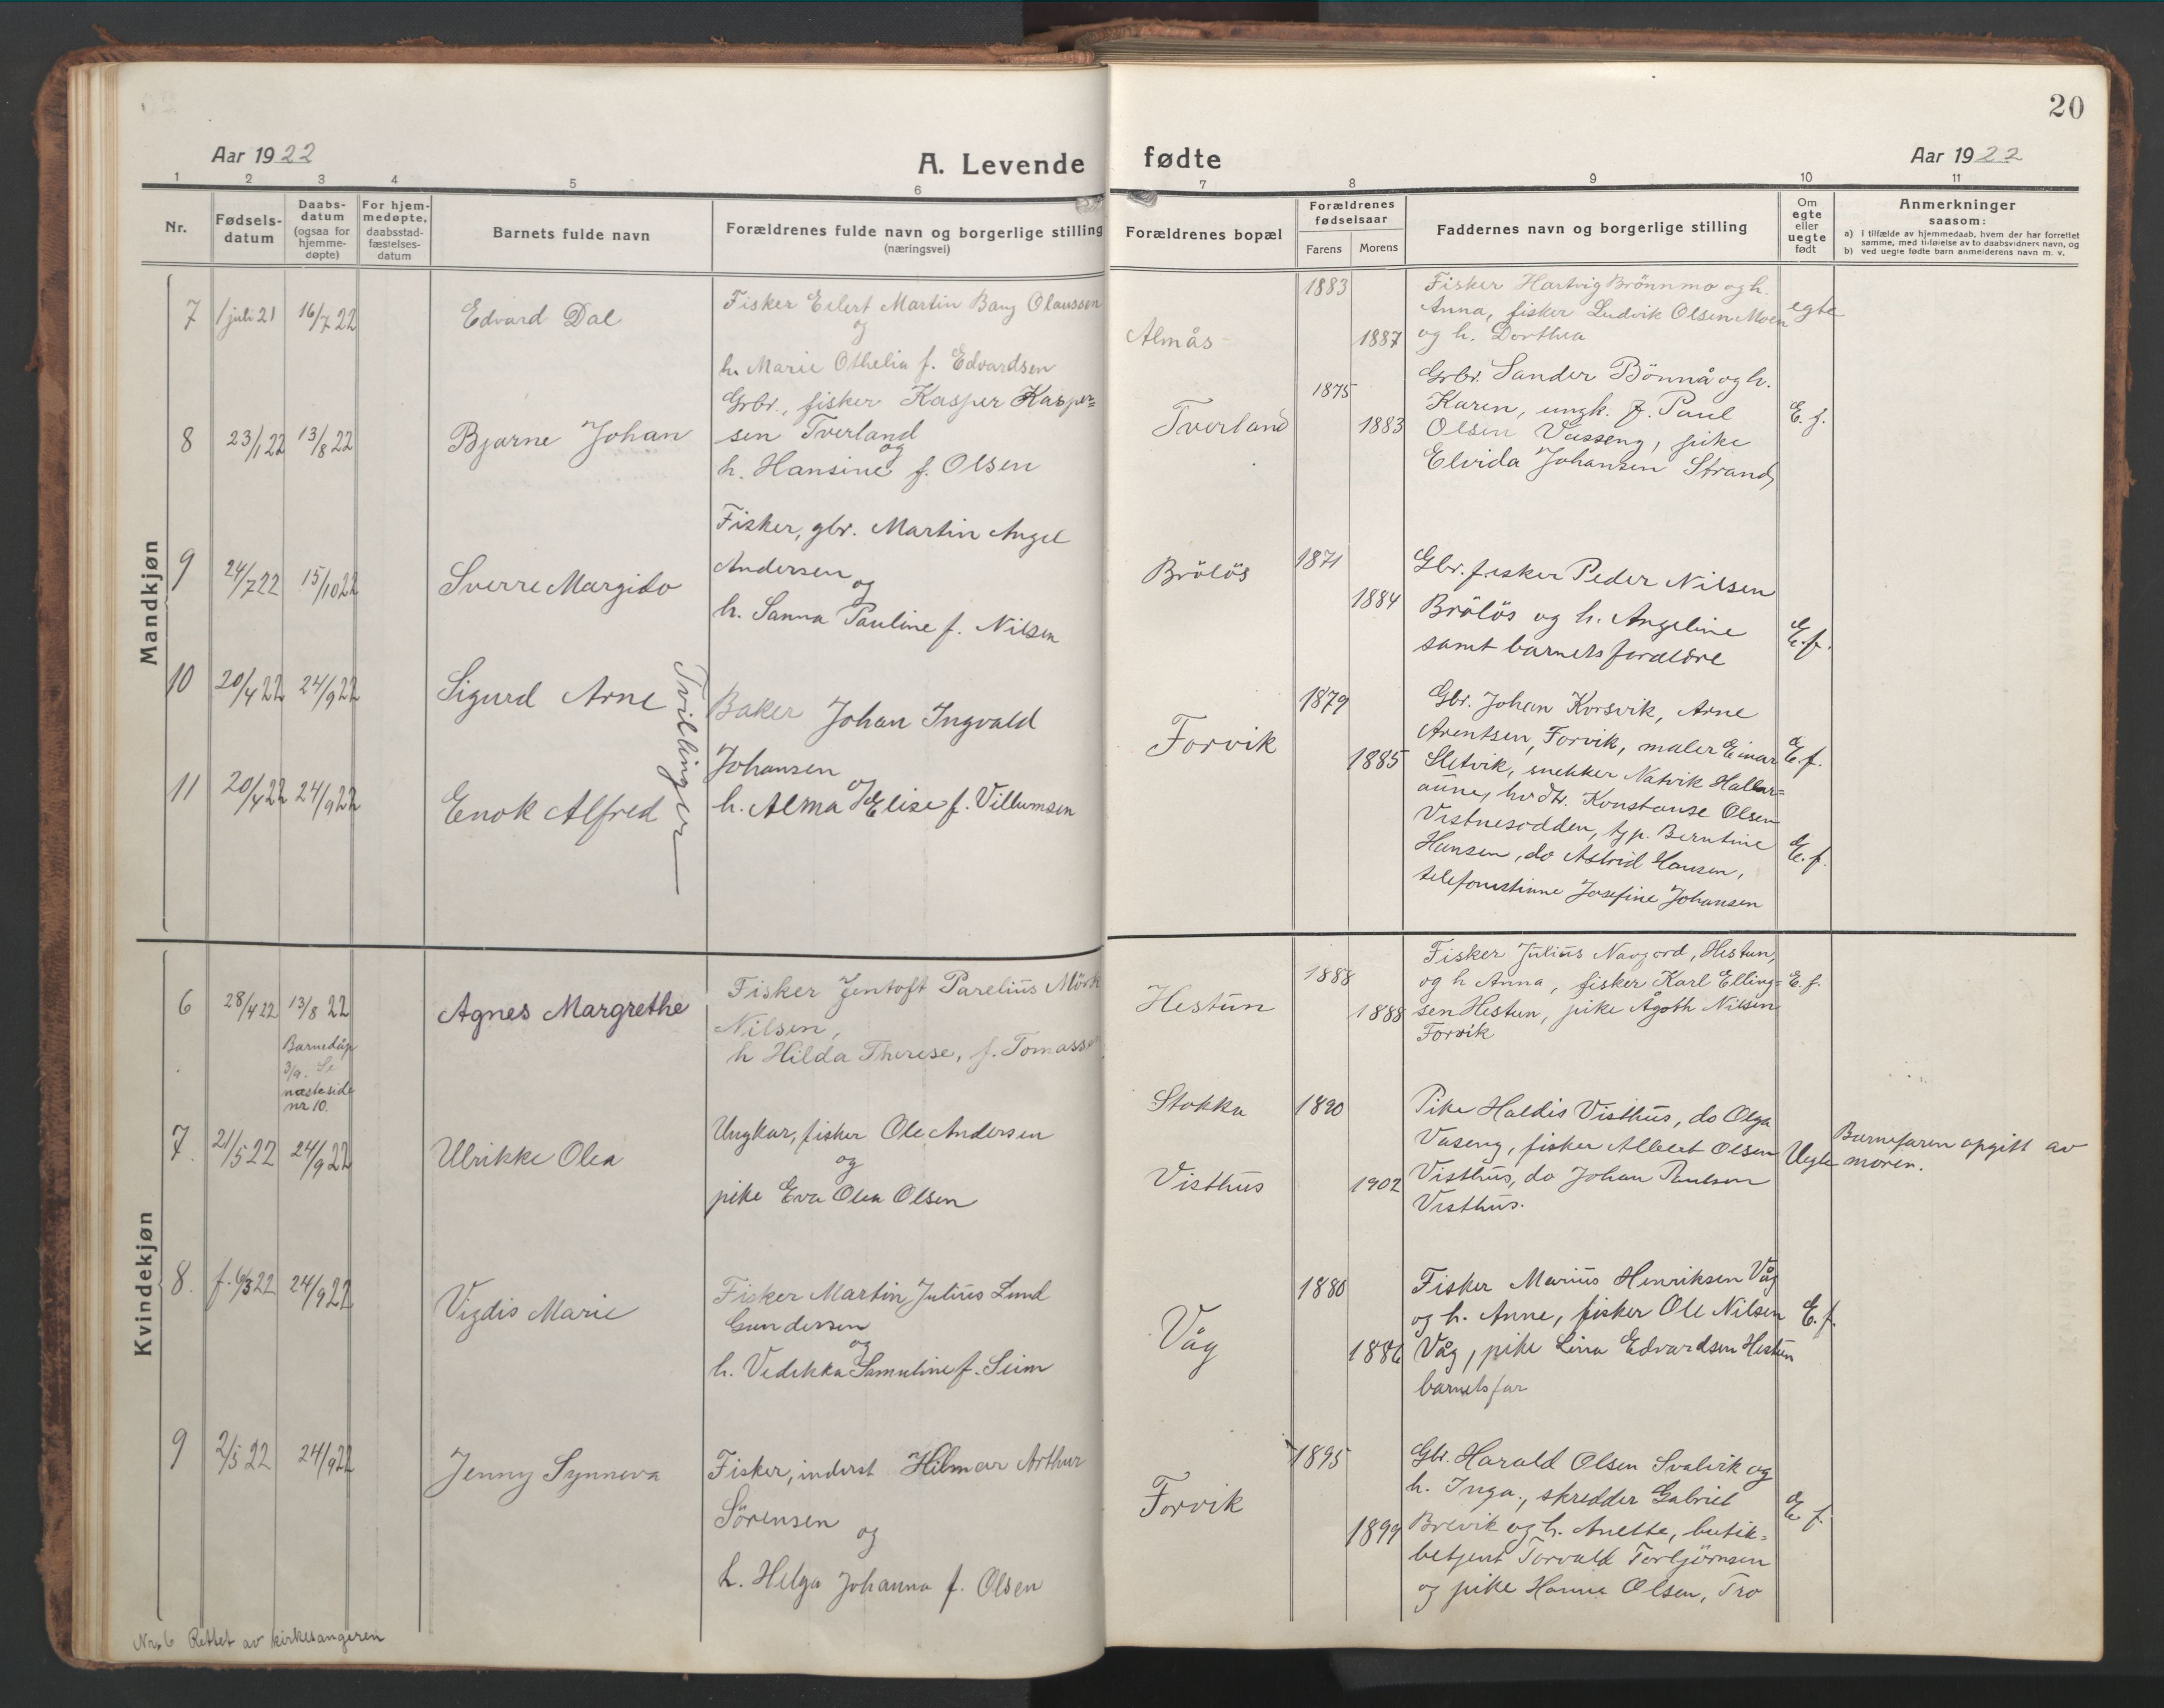 20
Aar 1922
A. Levende fødte
Aar 1922
1 2 3 4 5 6 7 8 9 10 11
Nr.
Fødsels-
datum
Daabs-
datum
(ogsaa for
hjemme-
døpte)
For hjem-
medøpte,
daabsstad-
fæstelses-
datum
Barnets fulde navn
Forældrenes fulde navn og borgerlige stilling
(næringsvei)
Forældrenes bopæl
Forældrenes
fødselsaar
Farens Morens
Faddernes navn og borgerlige stilling
Om
egte
eller
uegte
født
Anmerkninger
saasom:
a) i tilfælde av hjemmedaab, hvem der har forrettet
samme, med tilføielse av to daabsvidners navn, og
b) ved uegte fødte barn anmelderens navn m. v.
Mandkjøn
7 1 juli 21 16/7 22
Edvard Dal
Fisker Eilert Martin Bang Olaussen
og
h. Marie Othelia f. Edvardsen
Almås
1883
1887
Fisker Hartvig Brönnmo og h.
Anna, fisker Ludvik Olsen Moen
og h. Dorthea
egte
8 23/1 22 13/8 22
Bjarne Johan
Grbr., fisker Kasper Kasper=
sen Tverland
og
h. Hansine f. Olsen
Tverland
1875
1883
Grbr. Sander Bönnå og h.
Karen, ungk. f. Paul
Olsen Vasseng, pike
Elvida Johansen Strand
E. f.
9 24/7 22 15/10 22
Sverre Margido
Fisker, gbr. Martin Angel
Andersen
og
h. Sanna Pauline f. Nilsen
Brölös
1871
1884
Gbr. fisker Peder Nilsen
Brölös og h. Angeline
samt barnets foraldre
E. f.
10 20/4 22 24/9 22
Sigurd Arne
Tvillinger
11 20/4 22 24/9 22
Enok Alfred
Baker Johan Ingvald
Johansen
og
h. Alma Elise f. Villumsen
Forvik
1879
1885
Gbr. Johan Korsvik, Arne
Arentsen, Forvik, maler Einar
Sletvik, snekker Natvik Hallar=
aune, Konstanse Olsen
Vistnesodden, tjp. Berntine
Hansen, do Astrid Hansen,
telefonistinne Josefine Johansen
E. f.
E. f.
Kvindekjøn
6 28/4 22 13/8 22
Barnedåp
3/9. Se
næste side
nr 10.
Agnes Margrethe
Fisker Jentoft Parelius Mörk
Nilsen,
h Hilda Therese, f. Tomassen
Hestun
1888
1888
Fisker Julius Navgord, Hestun,
og h Anna, fisker Karl Elling=
sen Hestun, pike Ågoth Nilsen
Forvik
E. f.
7. 21/5 22 24/9 22
Ulrikke Olea
Ungkar, fisker Ole Andersen
og
pike Eva Olea Olsen
Stokka
Visthus
1890
1902
Pike Haldis Visthus, do Olga
Vaseng, fisker Albert Olsen
Visthus, do Johan Paulsen
Visthus.
Uegte
Barnefaren opgitt av
moren.
8. f. 6/3 22 24/9 22
Vigdis Marie
Fisker Martin Julius Lund
Gundersen
og
h. Vedikka Samuline f. Seim
Våg
1880
1886
Fisker Marius Henriksen Våg
og h. Anne, fisker Ole Nilsen
Våg, pike Lina Edvardsen Hestun
barnets far
E. f.
9 2/5 22 24/9 22
Jenny Synneva
Fisker, inderst Hilmar Arthur
Sörensen
og
h. Helga Johanna f. Olsen
Forvik
1895
1899
Gbr. Harald Olsen Svalvik og
h. Inga., skredder Gabriel
Brevik og h. Anette, butik=
betjent Torvald Torbjörnsen
og pike Hanna Olsen, Tro
E. f.
Nr. 6 Rettet av kirkesangeren